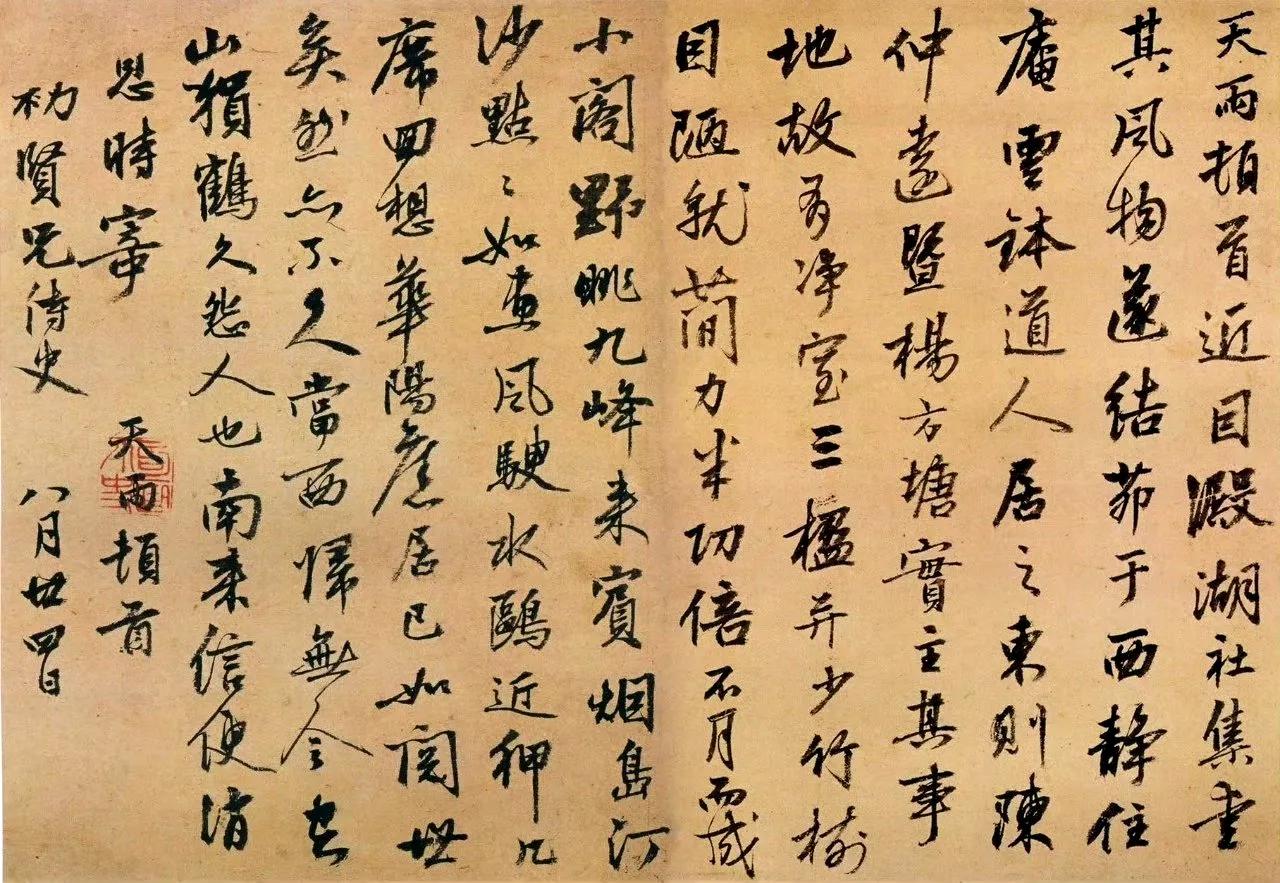 天雨頓首近因澱湖社集喜
其風物遂結茆于西静住
庵雲鉢道人居之東則陳
仲遠暨楊方塘實主其事
地故有净室三楹并少竹樹
因陋就蕳力半功倍不月而成
小閣野眺九峰来賓烟島汀
沙點〻如畫風騣水鷗近狎几
席回想華陽舊居已如閲世
矣然亦不久當西歸無令空
山猿鶴久怨人也南来信便惟
思時寄
朸賢兄侍史 天雨頓首
八月廿四日